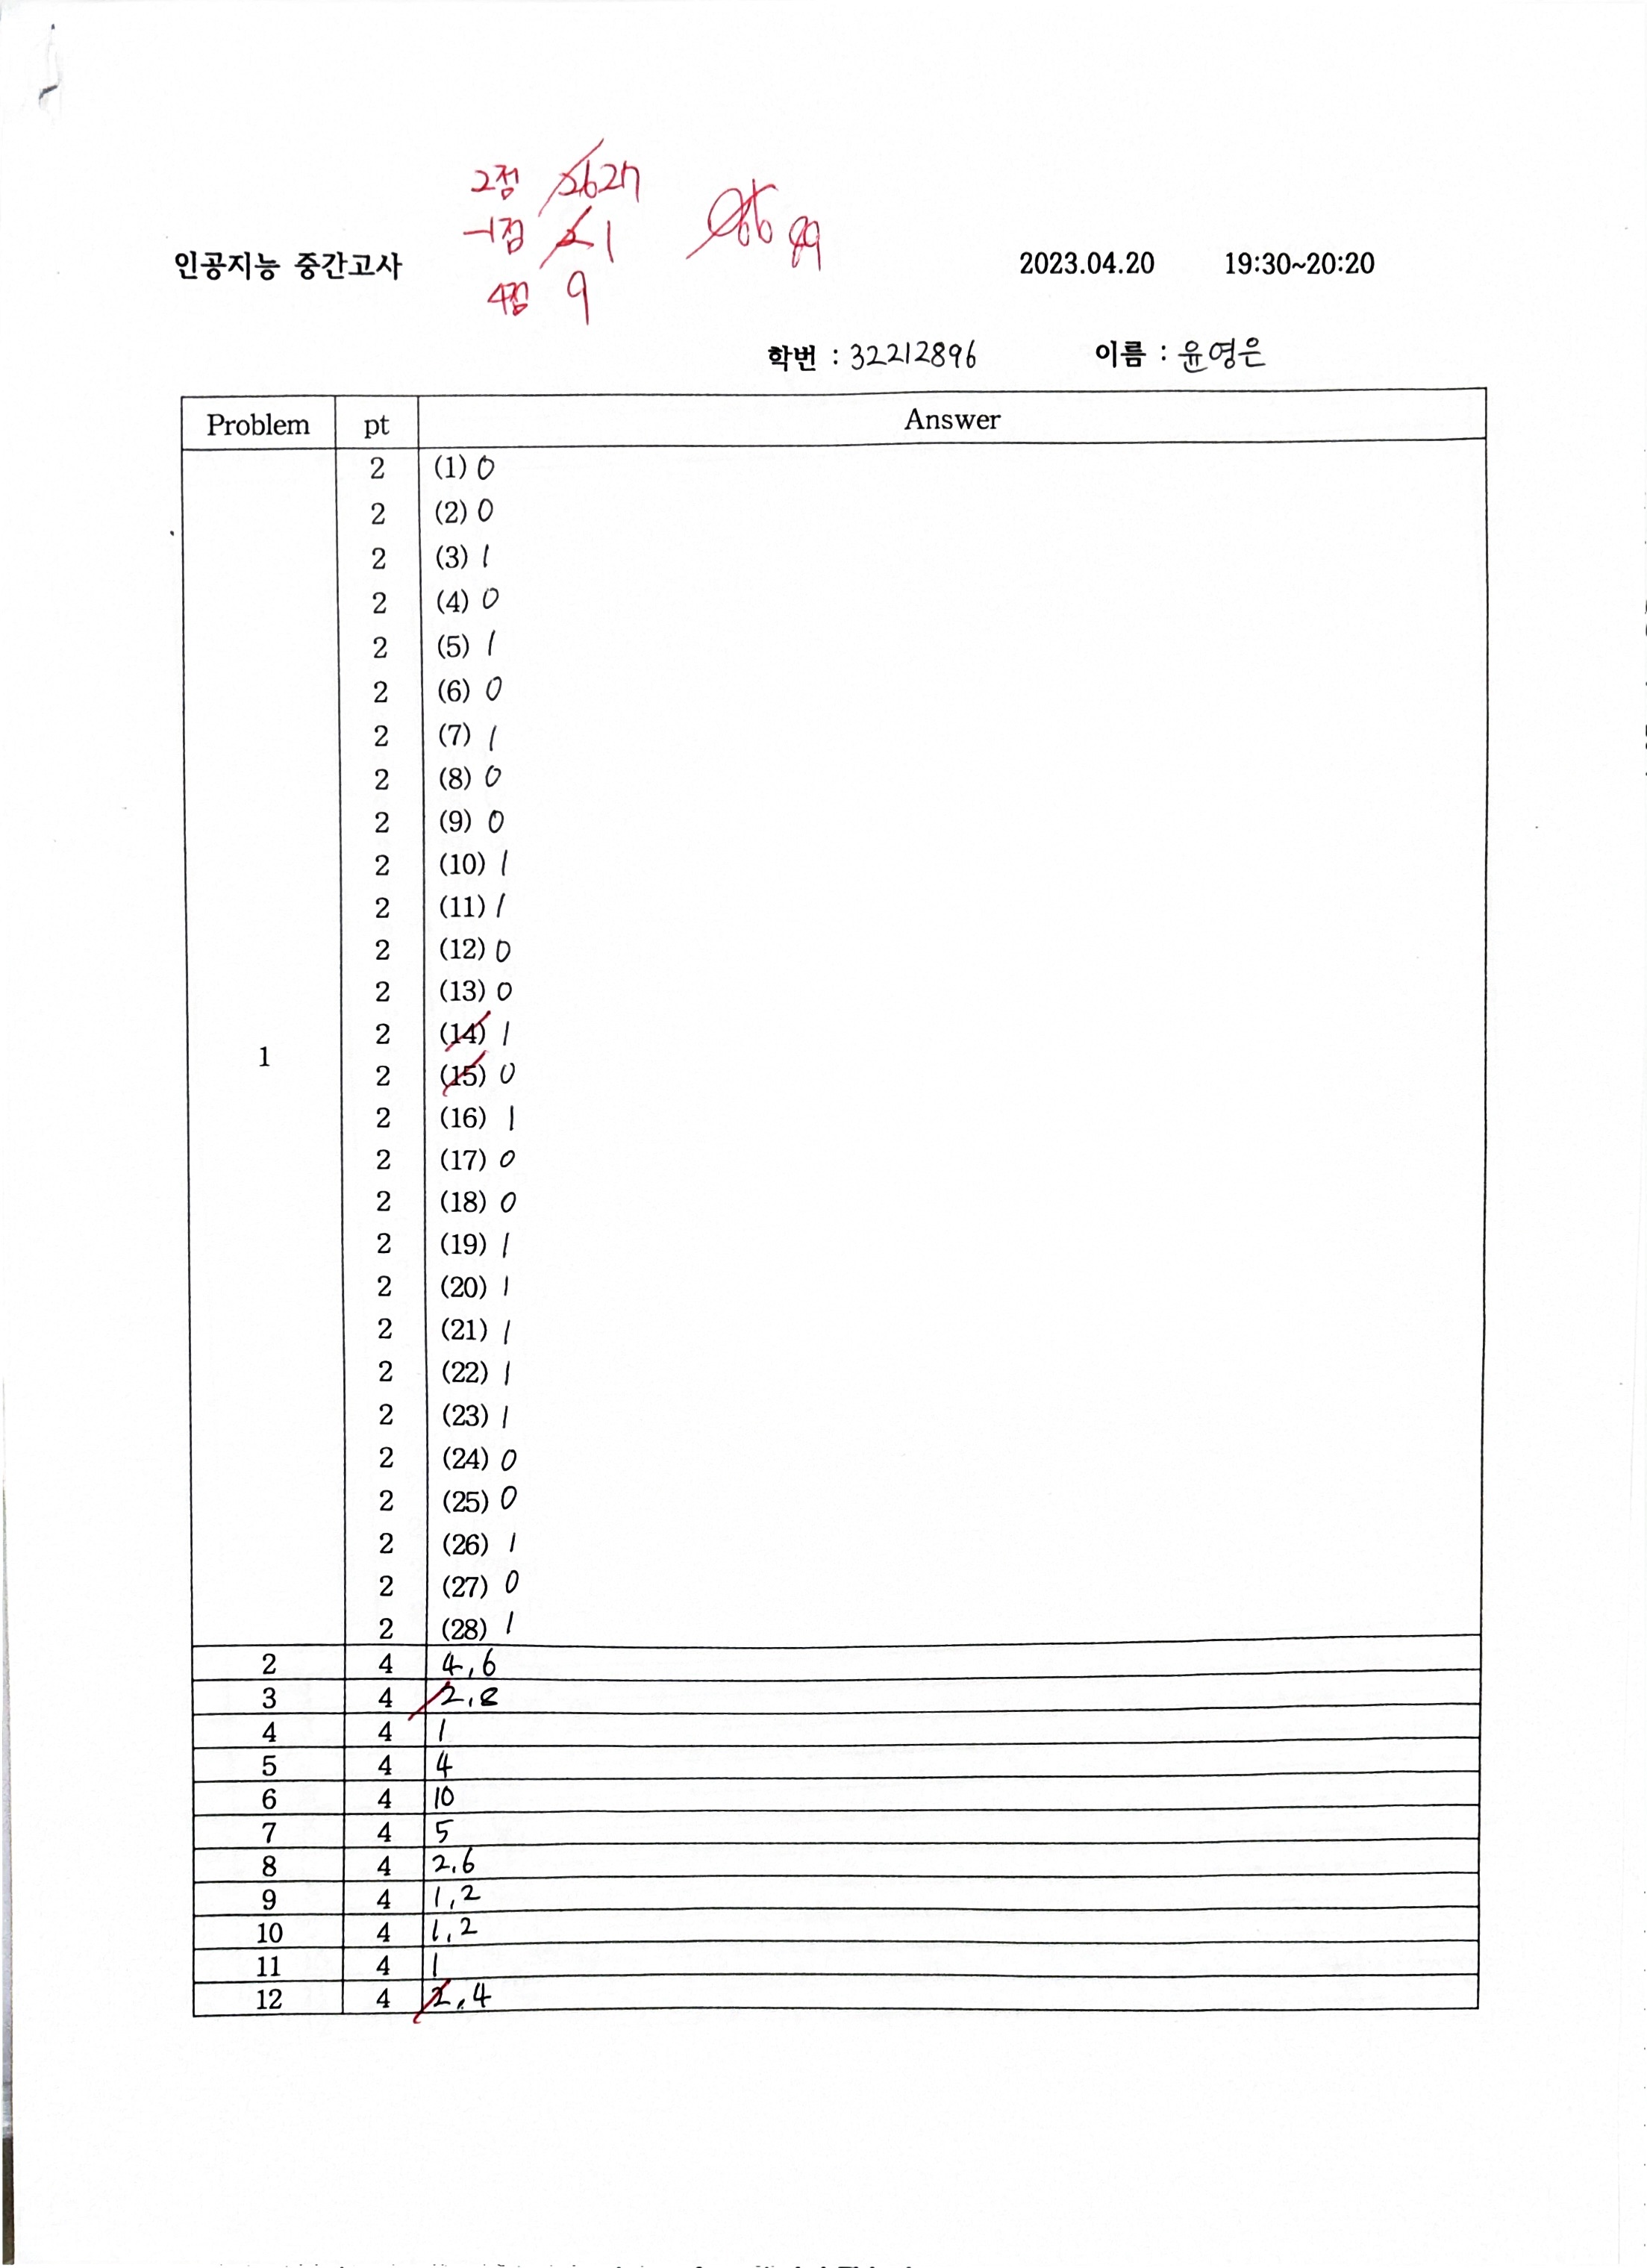 2점 26 27
-1점 2 1
86 89
4점 9
인공지능 중간고사 2023.04.20 19:30~20:20
학번 : 32212896 이름 : 윤영은
Problem pt Answer
2 (1) 0
2 (2) 0
2 (3) 1
2 (4) 0
2 (5) 1
2 (6) 0
2 (7) 1
2 (8) 0
2 (9) 0
2 (10) 1
2 (11) 1
2 (12) 0
2 (13) 0
2 (14) 1
1
2 (15) 0
2 (16) 1
2 (17) 0
2 (18) 0
2 (19) 1
2 (20) 1
2 (21) 1
2 (22) 1
2 (23) 1
2 (24) 0
2 (25) 0
2 (26) 1
2 (27) 0
2 (28) 1
2 4 4,6
3 4 2,8
4 4 1
5 4 4
6 4 10
7 4 5
8 4 2,6
9 4 1,2
10 4 1,2
11 4 1
12 4 2,4